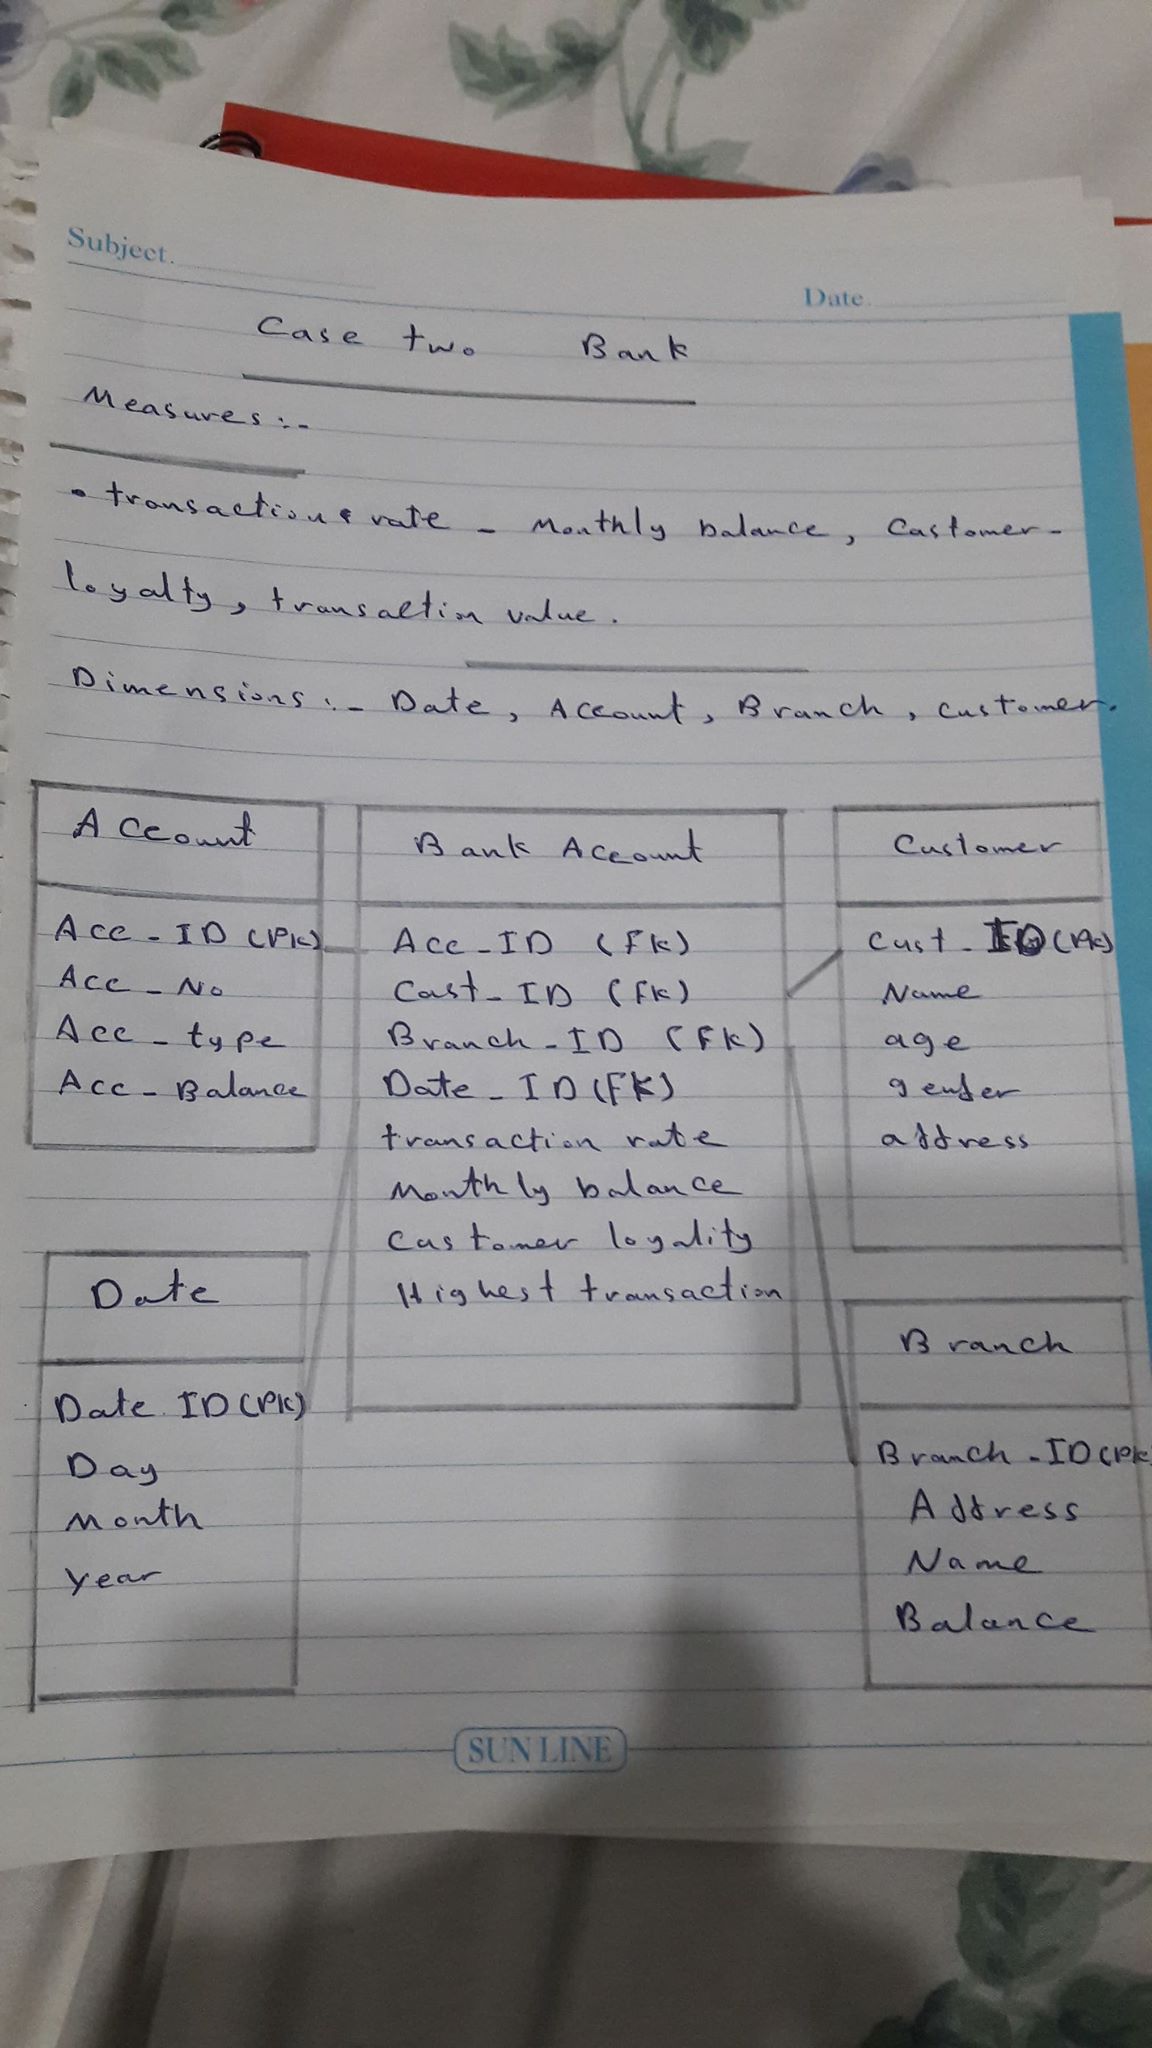 Subject.
Date.
Case two Bank
Measures:-
• transactions rate - Monthly balance, Castomer-
loyalty, transaction value.
Dimensions:- Date, Account, Branch, customer.
Account
Acc-ID (PK)
Acc-No
Acc-type
Acc-Balance
Bank Account
Acc-ID (FK)
Cast-ID (FK)
Branch-ID (FK)
Date-ID (FK)
transaction rate
Monthly balance
Castomer loyality
Highest transaction
Customer
Cust-ID (PK)
Name
age
gender
address
Date
Date ID (PK)
Day
Month
year
Branch
Branch-ID (PK
Address
Name
Balance
SUN LINE